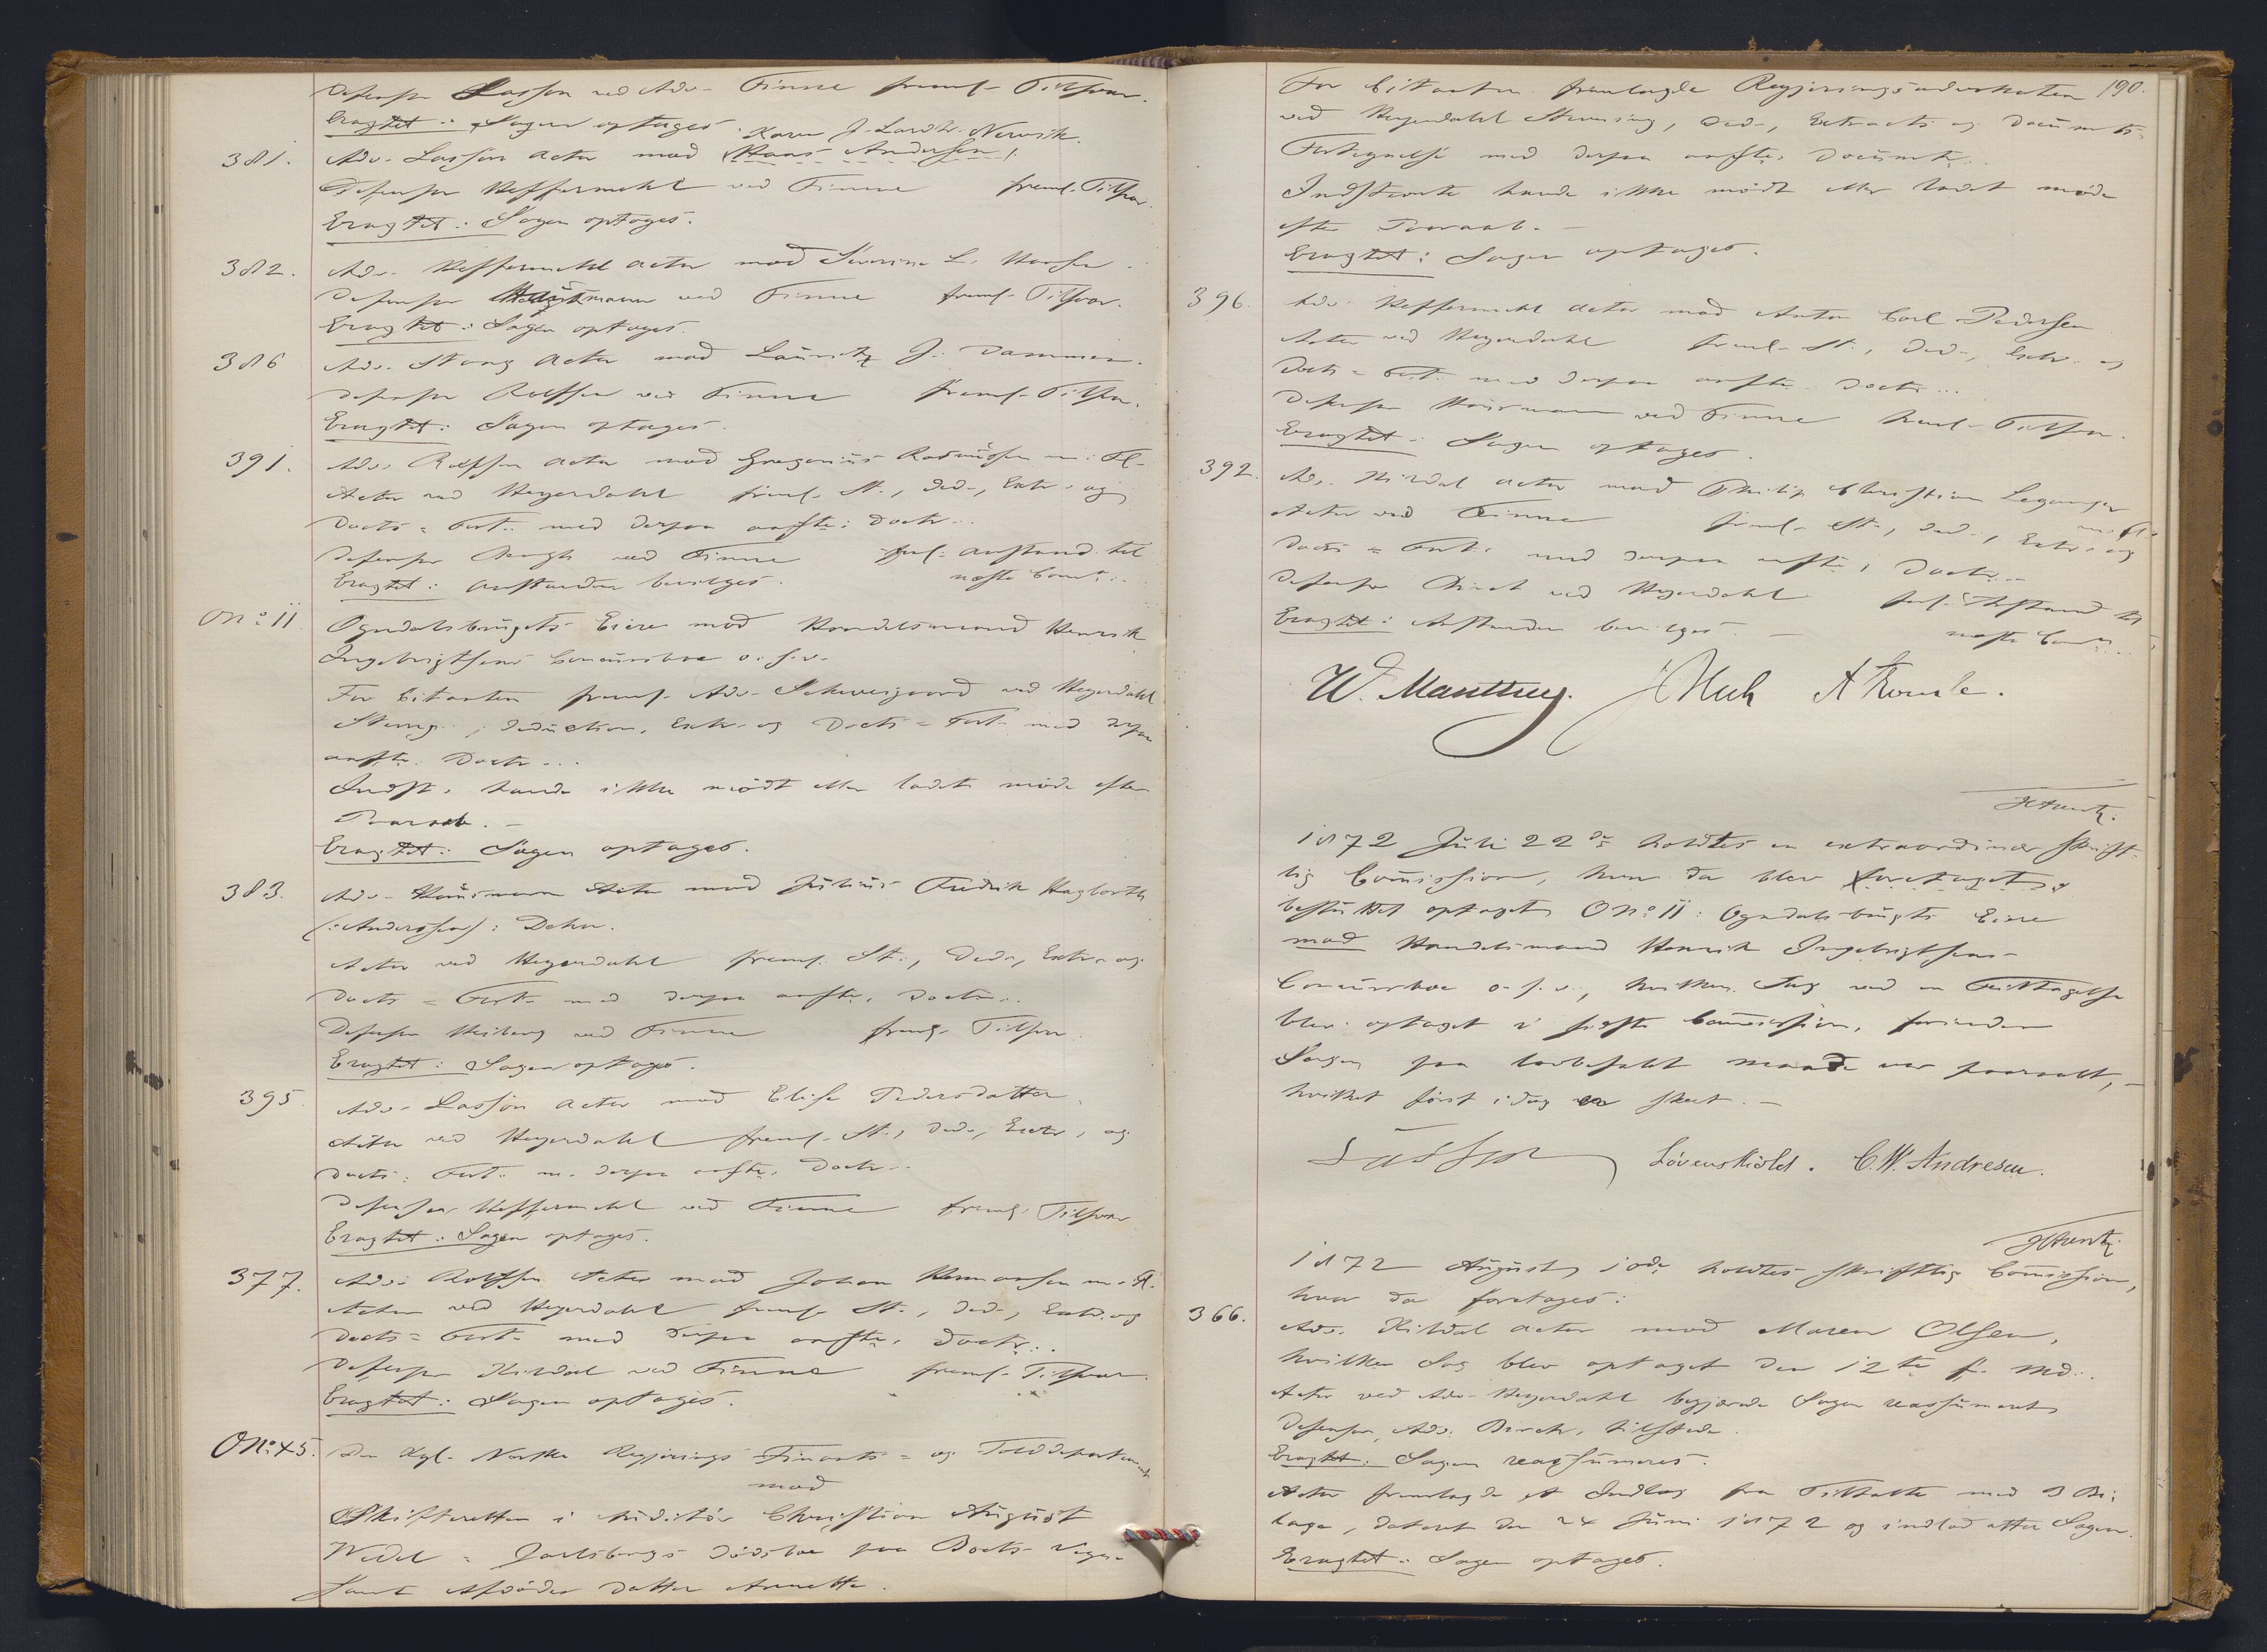 Defensor Lasson ved Adv. Finne freml. Tilsvar.
Eragtet: Sagen optages.
Karen J. Lardts. Nervik.
381. Adv. Lasson Actor mod Hans Andersen.
Defensor Heffermehl ved Finne freml. Tilsvar.
Eragtet: Sagen optages.
382. Adv. Heffermehl Actor mod Severine L. Hansen.
Defensor ved Finne freml. Tilsvar.
Eragtet: Sagen optages.
386 Adv. Stang Actor mod Lauritz J. Dammen.
Defensor Rolfsen ved Finne freml. Tilsvar.
Eragtet: Sagen optages.
391. Adv. Rolfsen Actor mod Gregorius Rasmussen m. Fl.
Actor ved Heyerdahl freml. St., Ded., Extr. og
Docts = Fort. med derpaa anførte Doctr.
Defensor Bergh ved Finne forl. Anstand til
Eragtet: Anstanden bevilges. næste Comm.
O No: 11. Ogndalsbrugets Eiere mod Handelsmand Henrik
Ingebrigtsens Concursboe o. s. v.
For Citanten freml. Adv. Schweigaard ved Heyerdahl
Stevng., Deduction, Extr. og Docts = Fort. med derpaa
anførte Doctr.
Indst. havde ikke mødt eller ladet møde efter
Paaraab. —
Eragtet: Sagen optages.
383. Adv. Hausmann Actor mod Julius Fredrik Hagbarth
(: Anderssen) : Dehn.
Actor ved Heyerdahl freml. St., Ded., Extr. og
Docts = Fort. med derpaa anførte Doctr.
Defensor Heiberg ved Finne freml. Tilsvar.
Eragtet: Sagen optages.
395. Adv. Lasson Actor mod Elise Pedersdatter.
Actor ved Heyerdahl freml. St., Ded., Extr. og
Docts = Fort. m. derpaa anførte Doctr.
Defensor Heffermehl ved Finne freml. Tilsvar
Eragtet: Sagen optages.
377. Adv. Rolfsen Actor mod Johan Hermansen m. Fl.
Actor ved Heyerdahl freml. St., Ded., Extr. og
Docts = Fort. med derpaa anførte Doctr.
Defensor Kildal ved Finne freml. Tilsvar.
Eragtet: Sagen optages.
O No: 45. Den Kgl. Norske Regjerings Finants = og Tolddepartement
mod
Skifteretten i Auditør Christian August
Wedel = Jarlsbergs Dødsboe paa Boets Vegne
samt Afdødes Datter Annette.
190.
For Citanten fremlagde Regjeringsadvokaten
ved Heyerdahl Stevning, Ded., Extract og Documents-
Fortegnelse med derpaa anførte Documtr.
Indstevnte havde ikke mødt eller ladet møde
efter Paaraab. —
Eragtet: Sagen optages.
396. Adv. Heffermehl Actor mod Anton Carl Pedersen
Actor ved Heyerdahl freml. St., Ded., Extr. og
Docts = Fort. med derpaa anførte Doctr.
Defensor Hausmann ved Finne freml. Tilsvar.
Eragtet: Sagen optages.
392. Adv. Kildal Actor mod Philip Christian Leganger
m. Fl.
Actor ved Finne freml. St., Ded., Extr. og
Docts = Fort. med derpaa anførte Doctr.
Defensor Birch ved Heyerdahl forl. Anstand til
Eragtet: Anstanden bevilges. — næste Comm.
W. Manthey.
1872 Juli 22de holdtes en extraordinær skrift-
lig Commission, hvor da blev foretaget og
besluttet optaget O No: 11: Ogndalsbrugets Eiere
mod Handelsmand Henrik Ingebrigtsens
Concursboe o. s. v., hvilken Sag ved en Feiltagelse
blev optaget i sidste Commission, forinden
Sagen paa lovbefalet Maade var paaraabt,
hvilket først i dag er skeet. —
Lasson Løvenskiold. C. W. Andresen.
1872 August 10de holdtes skriftlig Commission,
hvor da foretages:
366. Adv. Kildal Actor mod Maren Olsen,
hvilken Sag blev optaget den 12te f. Md.
Actor ved Adv. Heyerdahl begjærede Sagen reassumeret
Defensor, Adv. Birch, tilstede.
Eragtet: Sagen reassumeres.
Actor fremlagde et Indlæg fra Tiltalte med 3 Bi-
lage, dateret den 24 Juni 1872 og indlod atter Sagen.
Eragtet: Sagen optages.